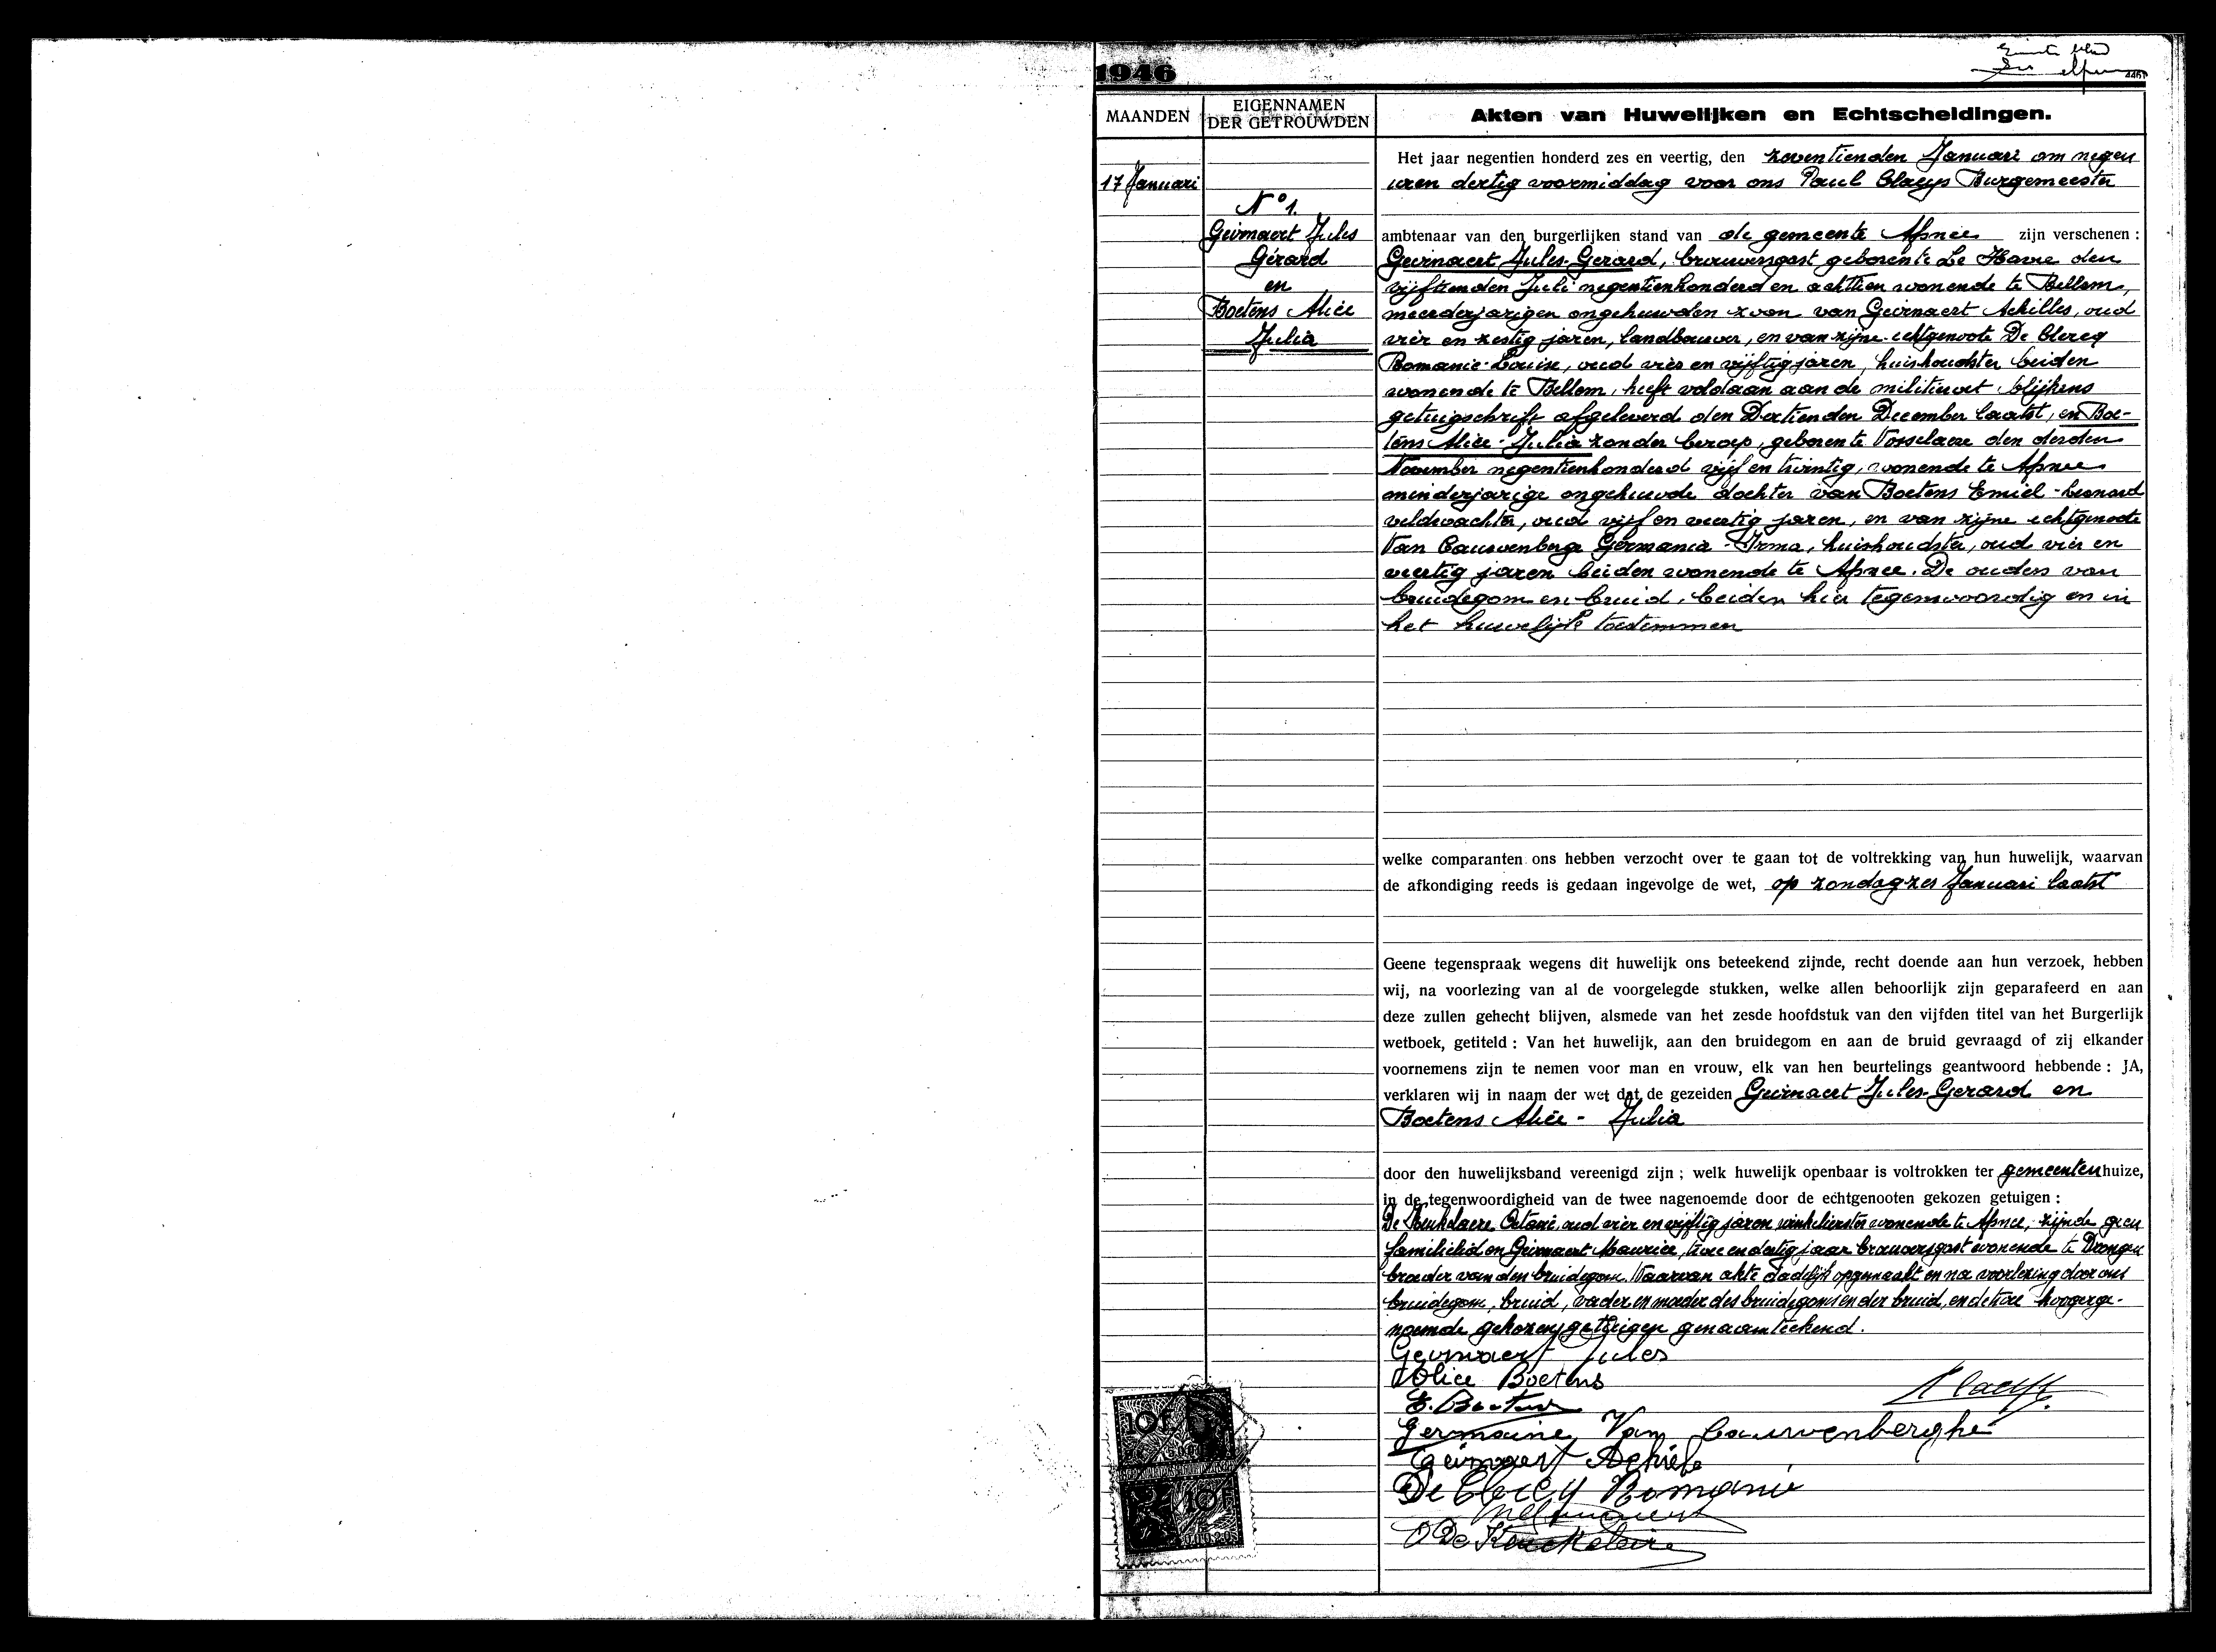 1946
Eerste blad
446
MAANDEN
EIGENNAMEN
DER GETROUWDEN
Akten van Huwelijken en Echtscheidingen.
17 Januari
N° 1.
Geirnaert Jules
Gérard
en
Boetens Alice
Julia
Het jaar negentien honderd zes en veertig, den zeventienden Januari om negen
uren dertig voormiddag voor ons Paul Claeys Burgemeester
ambtenaar van den burgerlijken stand van de gemeente Afsnee zijn verschenen :
Geirnaert Jules-Gerard, brouwersgast geboren te Le Havre den
vijftienden Juli negentienhonderd en achttien wonende te Bellem,
meerderjarigen ongehuwden zoon van Geirnaert Achilles, oud
vier en zestig jaren, landbouwer, en van zijne echtgenoote De Clercq
Romanie-Louise, oud vier en vijftig jaren, huishoudster beiden
wonende te Bellem, heeft voldaan aan de militiewet blijkens
getuigschrift afgeleverd den Dertienden December laatst, en Boe-
tens Alice-Julia zonder beroep, geboren te Vosselaere den derden
November negentienhonderd vijf en twintig, wonende te Afsnee
minderjarige ongehuwde dochter van Boetens Emiel-Leonard
veldwachter, oud vijf en veertig jaren, en van zijne echtgenoote
Van Cauwenberge Germania-Irma, huishoudster, oud vier en
veertig jaren beiden wonende te Afsnee. De ouders van
bruidegom en bruid, beiden hier tegenwoordig en in
het huwelijk toestemmen
welke comparanten ons hebben verzocht over te gaan tot de voltrekking van hun huwelijk, waarvan
de afkondiging reeds is gedaan ingevolge de wet, op zondag zes Januari laatst
Geene tegenspraak wegens dit huwelijk ons beteekend zijnde, recht doende aan hun verzoek, hebben
wij, na voorlezing van al de voorgelegde stukken, welke allen behoorlijk zijn geparafeerd en aan
deze zullen gehecht blijven, alsmede van het zesde hoofdstuk van den vijfden titel van het Burgerlijk
wetboek, getiteld : Van het huwelijk, aan den bruidegom en aan de bruid gevraagd of zij elkander
voornemens zijn te nemen voor man en vrouw, elk van hen beurtelings geantwoord hebbende : JA,
verklaren wij in naam der wet dat de gezeiden Geirnaert Jules-Gerard en
Boetens Alice - Julia
door den huwelijksband vereenigd zijn ; welk huwelijk openbaar is voltrokken ter gemeentenhuize,
in de tegenwoordigheid van de twee nagenoemde door de echtgenooten gekozen getuigen :
De Keukelaere Octavie, oud vier en vijftig jaren winkelierster wonende te Afsnee, zijnde geen
familielid en Geirnaert Maurice, twee en dertig jaar brouwersgast wonende te Drongen
broeder van den bruidegom. Waarvan akte dadelijk opgemaakt en na voorlezing door ons
bruidegom, bruid, vader en moeder des bruidegoms en der bruid, en de twee hoogerge-
noemde gekozen getuigen genaamteekend.
Geirnaert Jules
Alice Boetens
P Claeys
E. Boetens
Germaine Van Cauwenberghe
Geirnaert Achiel
De Clercq Romanie
O De Keuckelaire
10f.
10F